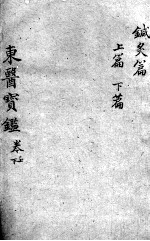 鍼灸篇
上篇 下篇
東醫寶鑑 卷下